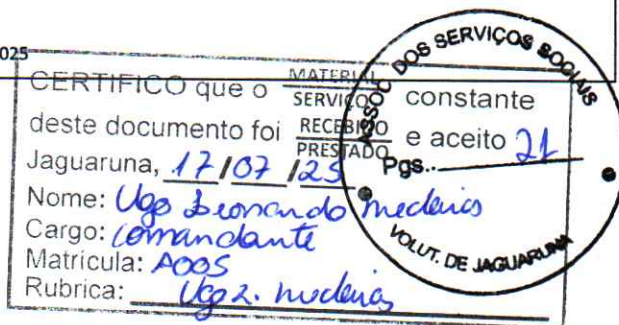 025
CERTIFICO que o MATERIAL
SERVIÇO constante
deste documento foi RECEBIDO
PRESTADO e aceito
Jaguaruna, 17/07/25
Nome: Ugo Leonardo Medeiros
Cargo: Comandante
Matrícula: A005
Rubrica: Ugo L. Medeiros
ASSOC DOS SERVIÇOS SOCIAIS
21
Pgs.:
VOLUT. DE JAGUARUNA